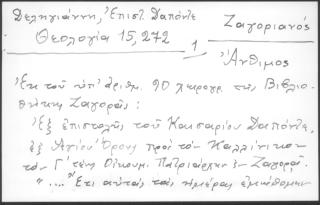 Δεληγιάννη, Ἐπιστ. Δαπόντε
Ζαγοριανός
Θεολογία 15, 272
1
Ἄνθιμος
Ἐκ τοῦ ὑπ' ἀριθμ. 90 χειρογρ. τῆς Βιβλιο-
θήκης Ζαγορᾶς:
"Ἐξ ἐπιστολῆς τοῦ Καισαρίου Δαπόντε,
ἐξ Ἁγίου Ὄρους πρὸς τὸν Καλλίνικον
τὸν Γ' τέως Οἰκουμ. Πατριάρχην ἐν Ζαγορᾷ.
"..... "Ἔτι αὐτὰς τὰς ἡμέρας